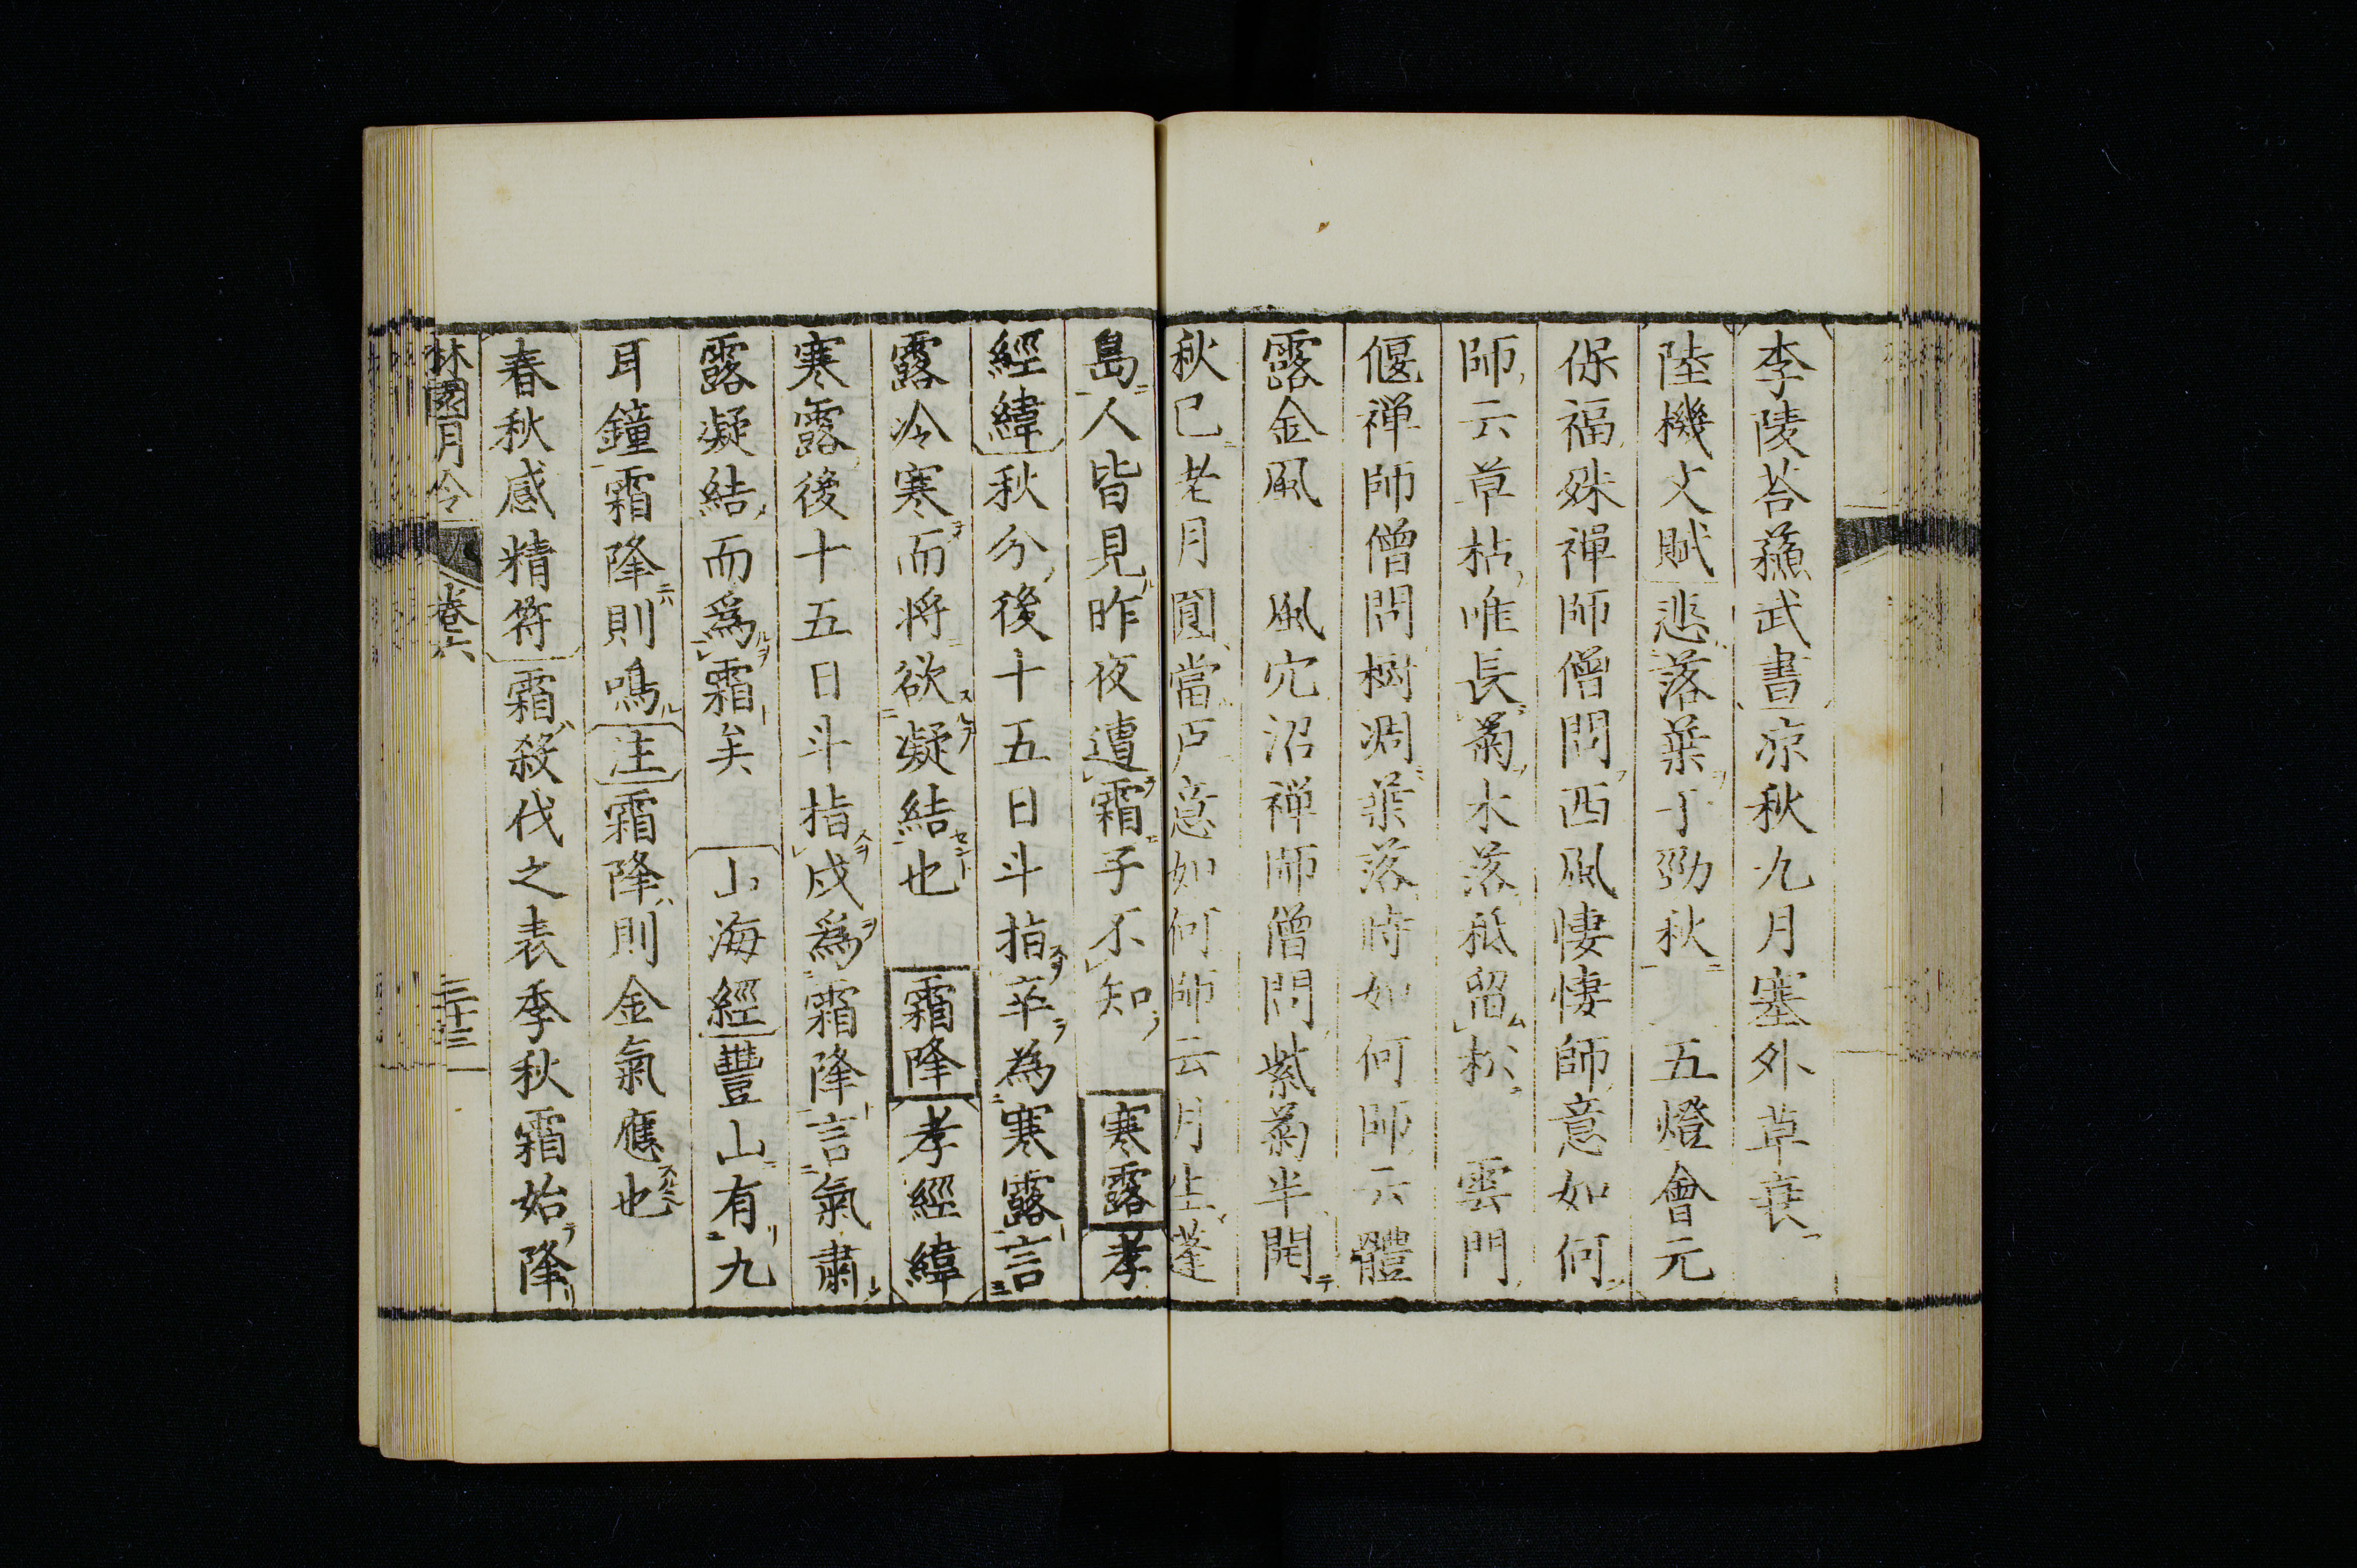 李陵荅蘇武書凉秋九月塞外草衰
陸機文賦悲落葉于勁秋　五燈會元
保福殊禅師僧問西風悽悽師意如何
師云草枯唯長菊木落秪留松　雲門
偃禅師僧問樹凋葉落時如何師云體
露金風　風穴沼禅師僧問紫菊半開
秋已老月圓當戸意如何師云月生蓬
島人皆見昨夜遭霜子不知　寒露孝
經緯秋分後十五日斗指辛為寒露言
露冷寒而将欲凝結也　霜降孝經緯
寒露後十五日斗指戌爲霜降言氣肅
露凝結而爲霜矣　山海經豐山有九
耳鐘霜降則鳴注霜降則金氣應也
春秋感精符霜殺伐之表季秋霜始降
林園月令　卷六　三十三